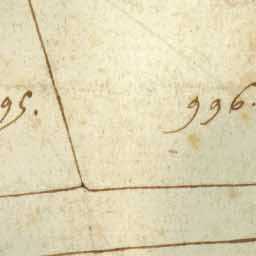 95.
996.